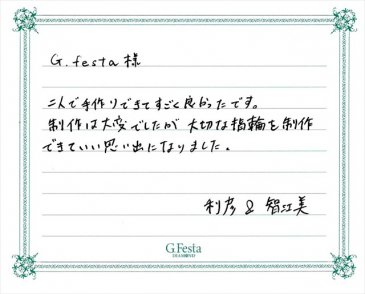 G.festa 様
二人で手作りできてすごく良かったです。
制作は大変でしたが 大切な指輪を制作
できていい思い出になりました。
利彦 & 智江美
G.Festa
DIAMOND